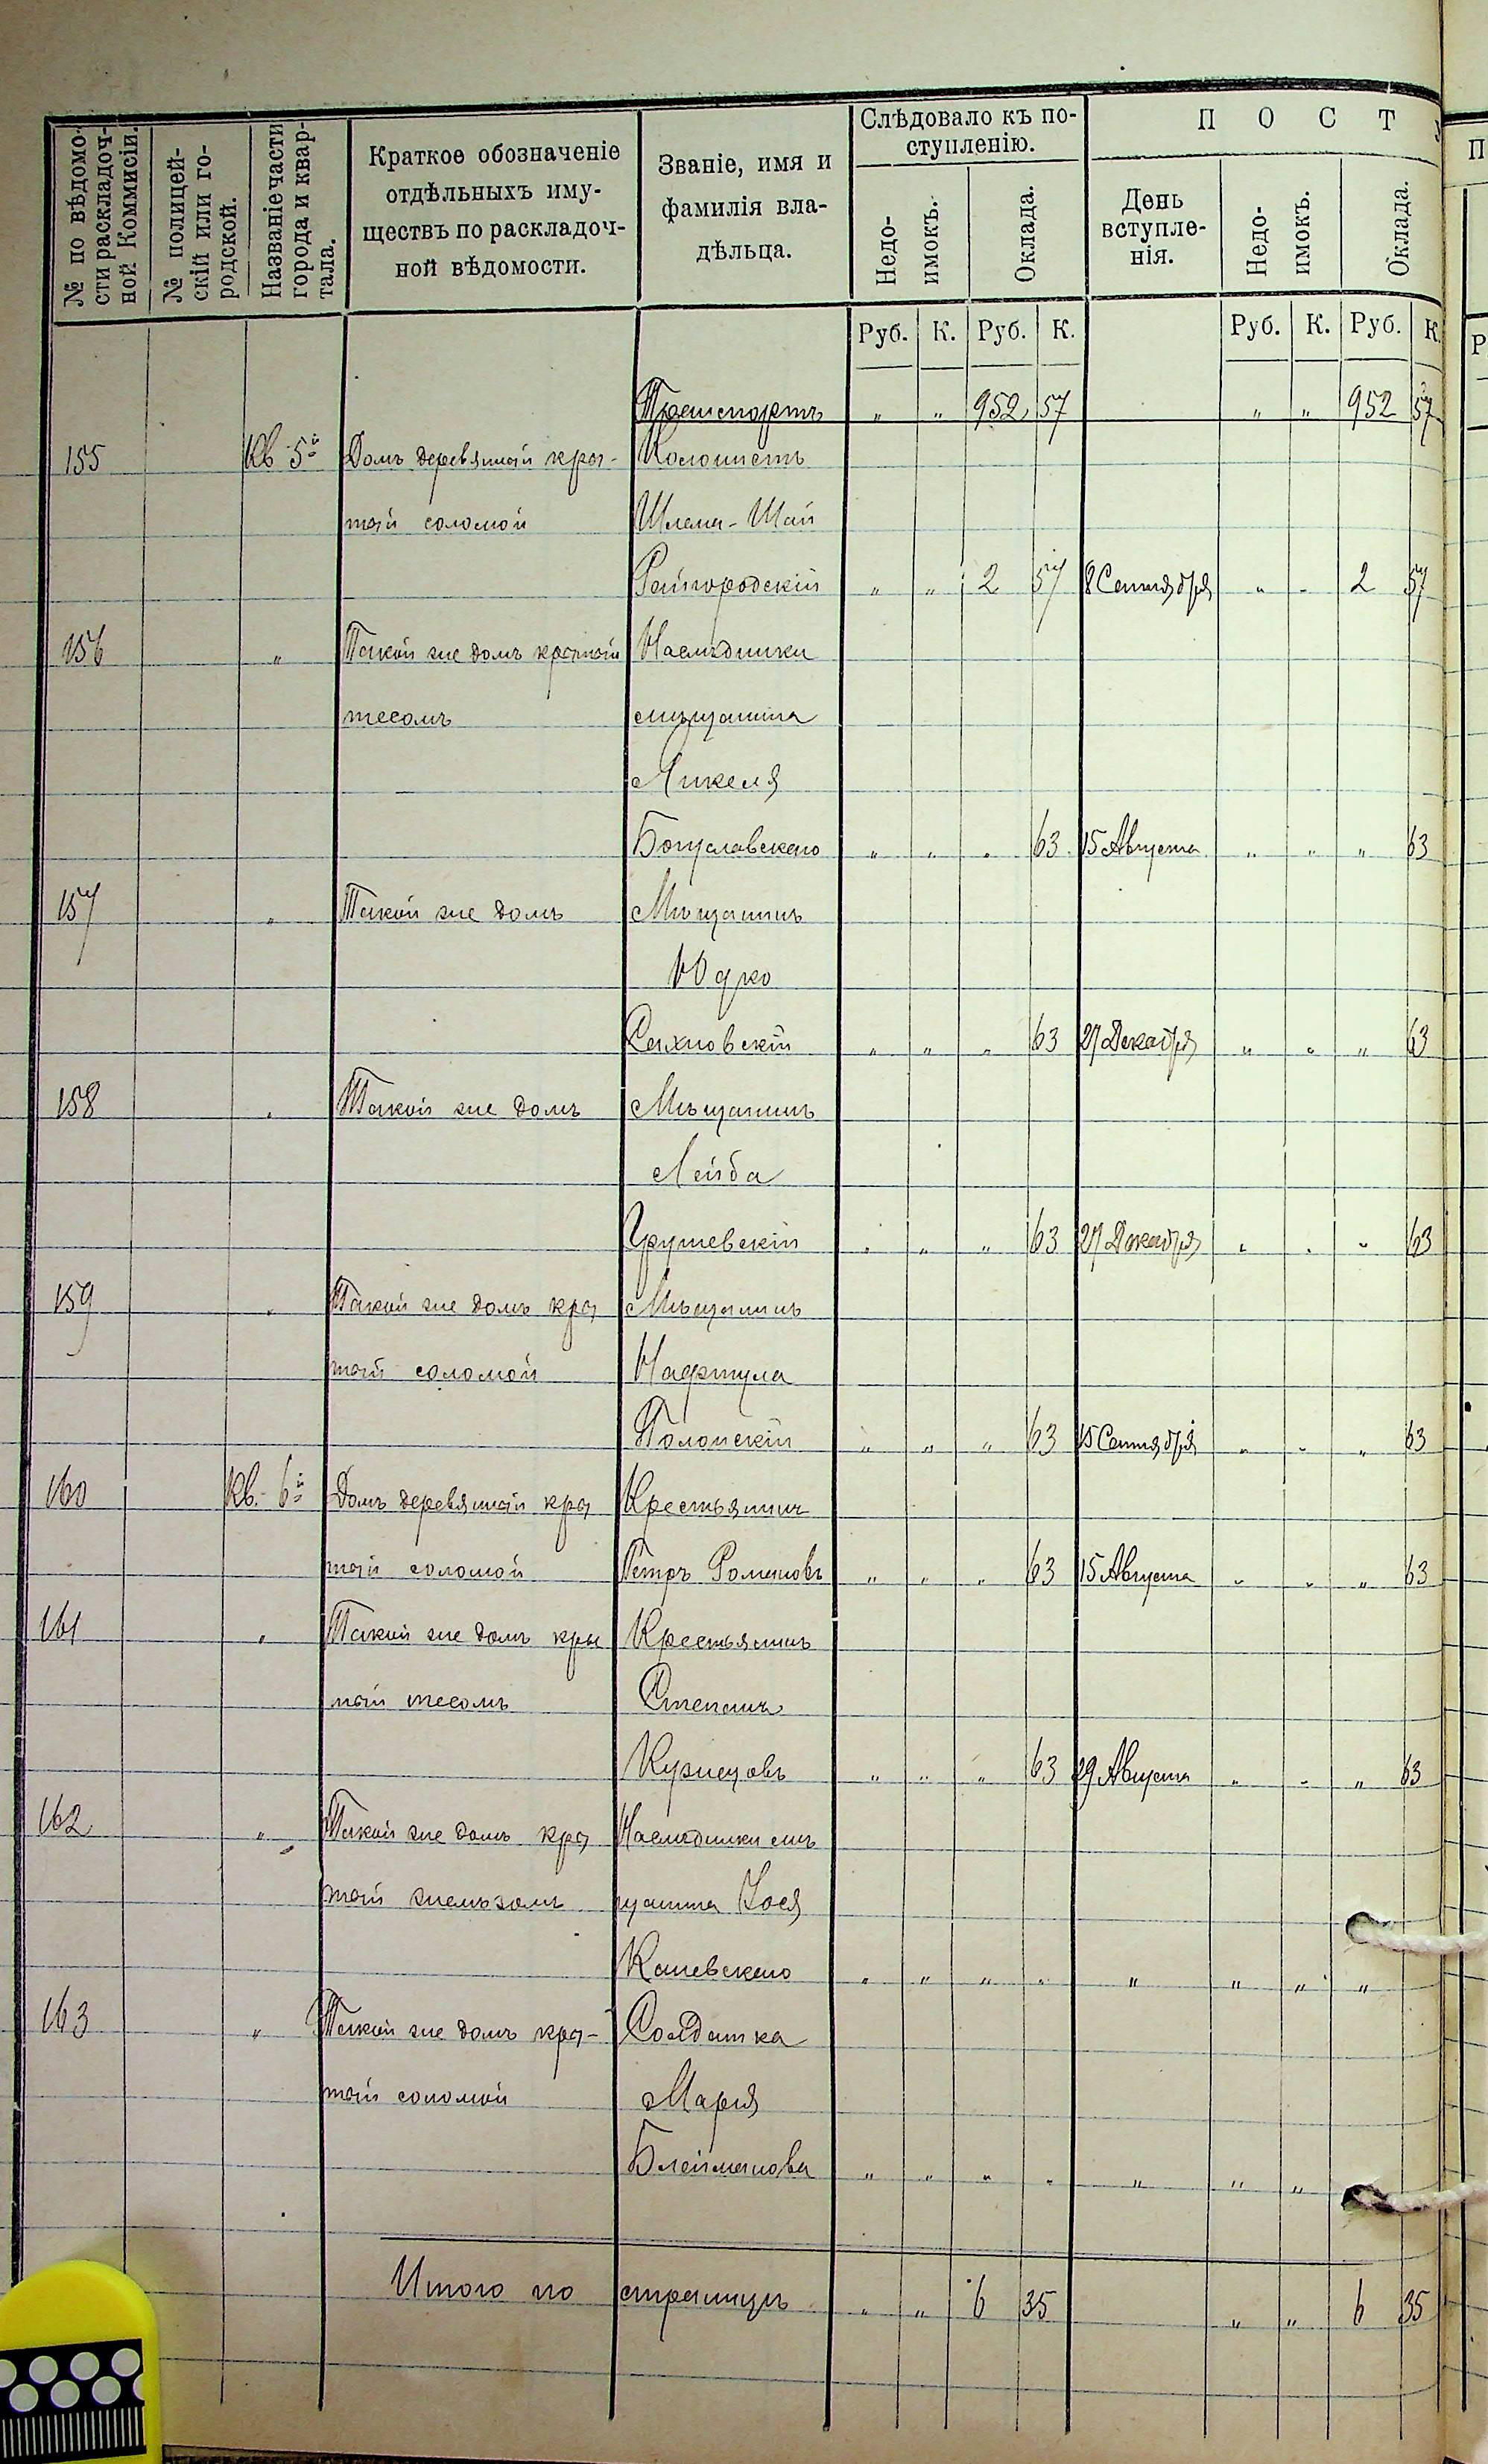 № по вѣдомо-
сти раскладоч-
ной Коммисіи.
№ полицей-
скій или го-
родской.
Названіе части
города и квар-
тала.
Краткое обозначеніе
отдѣльныхъ иму-
ществъ по раскладоч-
ной вѣдомости.
Званіе, имя и
фамилія вла-
дѣльца.
Слѣдовало къ по-
ступленію.
Недо-
имокъ.
Оклада.
П О С Т
День
вступле-
нія.
Недо-
имокъ.
Оклада.
Руб. К. Руб. К. Руб. К. Руб. К.
Транспортъ „ „ 952 57 „ „ 952 57
155 Кв 5й Домъ деревянный кры- Колонистъ
тый соломой Шлема-Шай
Райгородскій „ „ 2 57 8 Сентября „ „ 2 57
156 „ Такой же домъ крытый Наслѣдники
тесомъ мѣщанина
Янкеля
Богуславскаго „ „ „ 63 15 Августа „ „ „ 63
157 „ Такой же домъ Мѣщанинъ
Юдко
Сахновскій „ „ „ 63 27 Декабря „ „ „ 63
158 „ Такой же домъ Мѣщанинъ
Лейба
Грушевскій „ „ „ 63 27 Декабря „ „ „ 63
159 „ Такой же домъ кры Мѣщанинъ
тый соломой Нафтула
Полонскій „ „ „ 63 15 Сентября „ „ „ 63
160 Кв. 6й Домъ деревянный кры Крестьянинъ
тый соломой Петръ Романовъ „ „ „ 63 15 Августа „ „ „ 63
161 „ Такой же домъ кры Крестьянинъ
тый тесомъ Степанъ
Кузнецовъ „ „ „ 63 29 Августа „ „ „ 63
162 „ Такой же домъ кры Наслѣдники мѣ
тый желѣзомъ щанина Іося
Каневскаго „ „ „ „ „ „ „ „
163 „ Такой же домъ кры- Солдатка
тый соломой Марія
Блейманова „ „ „ „ „ „ „
Итого по страницѣ „ „ 6 35 „ „ 6 35